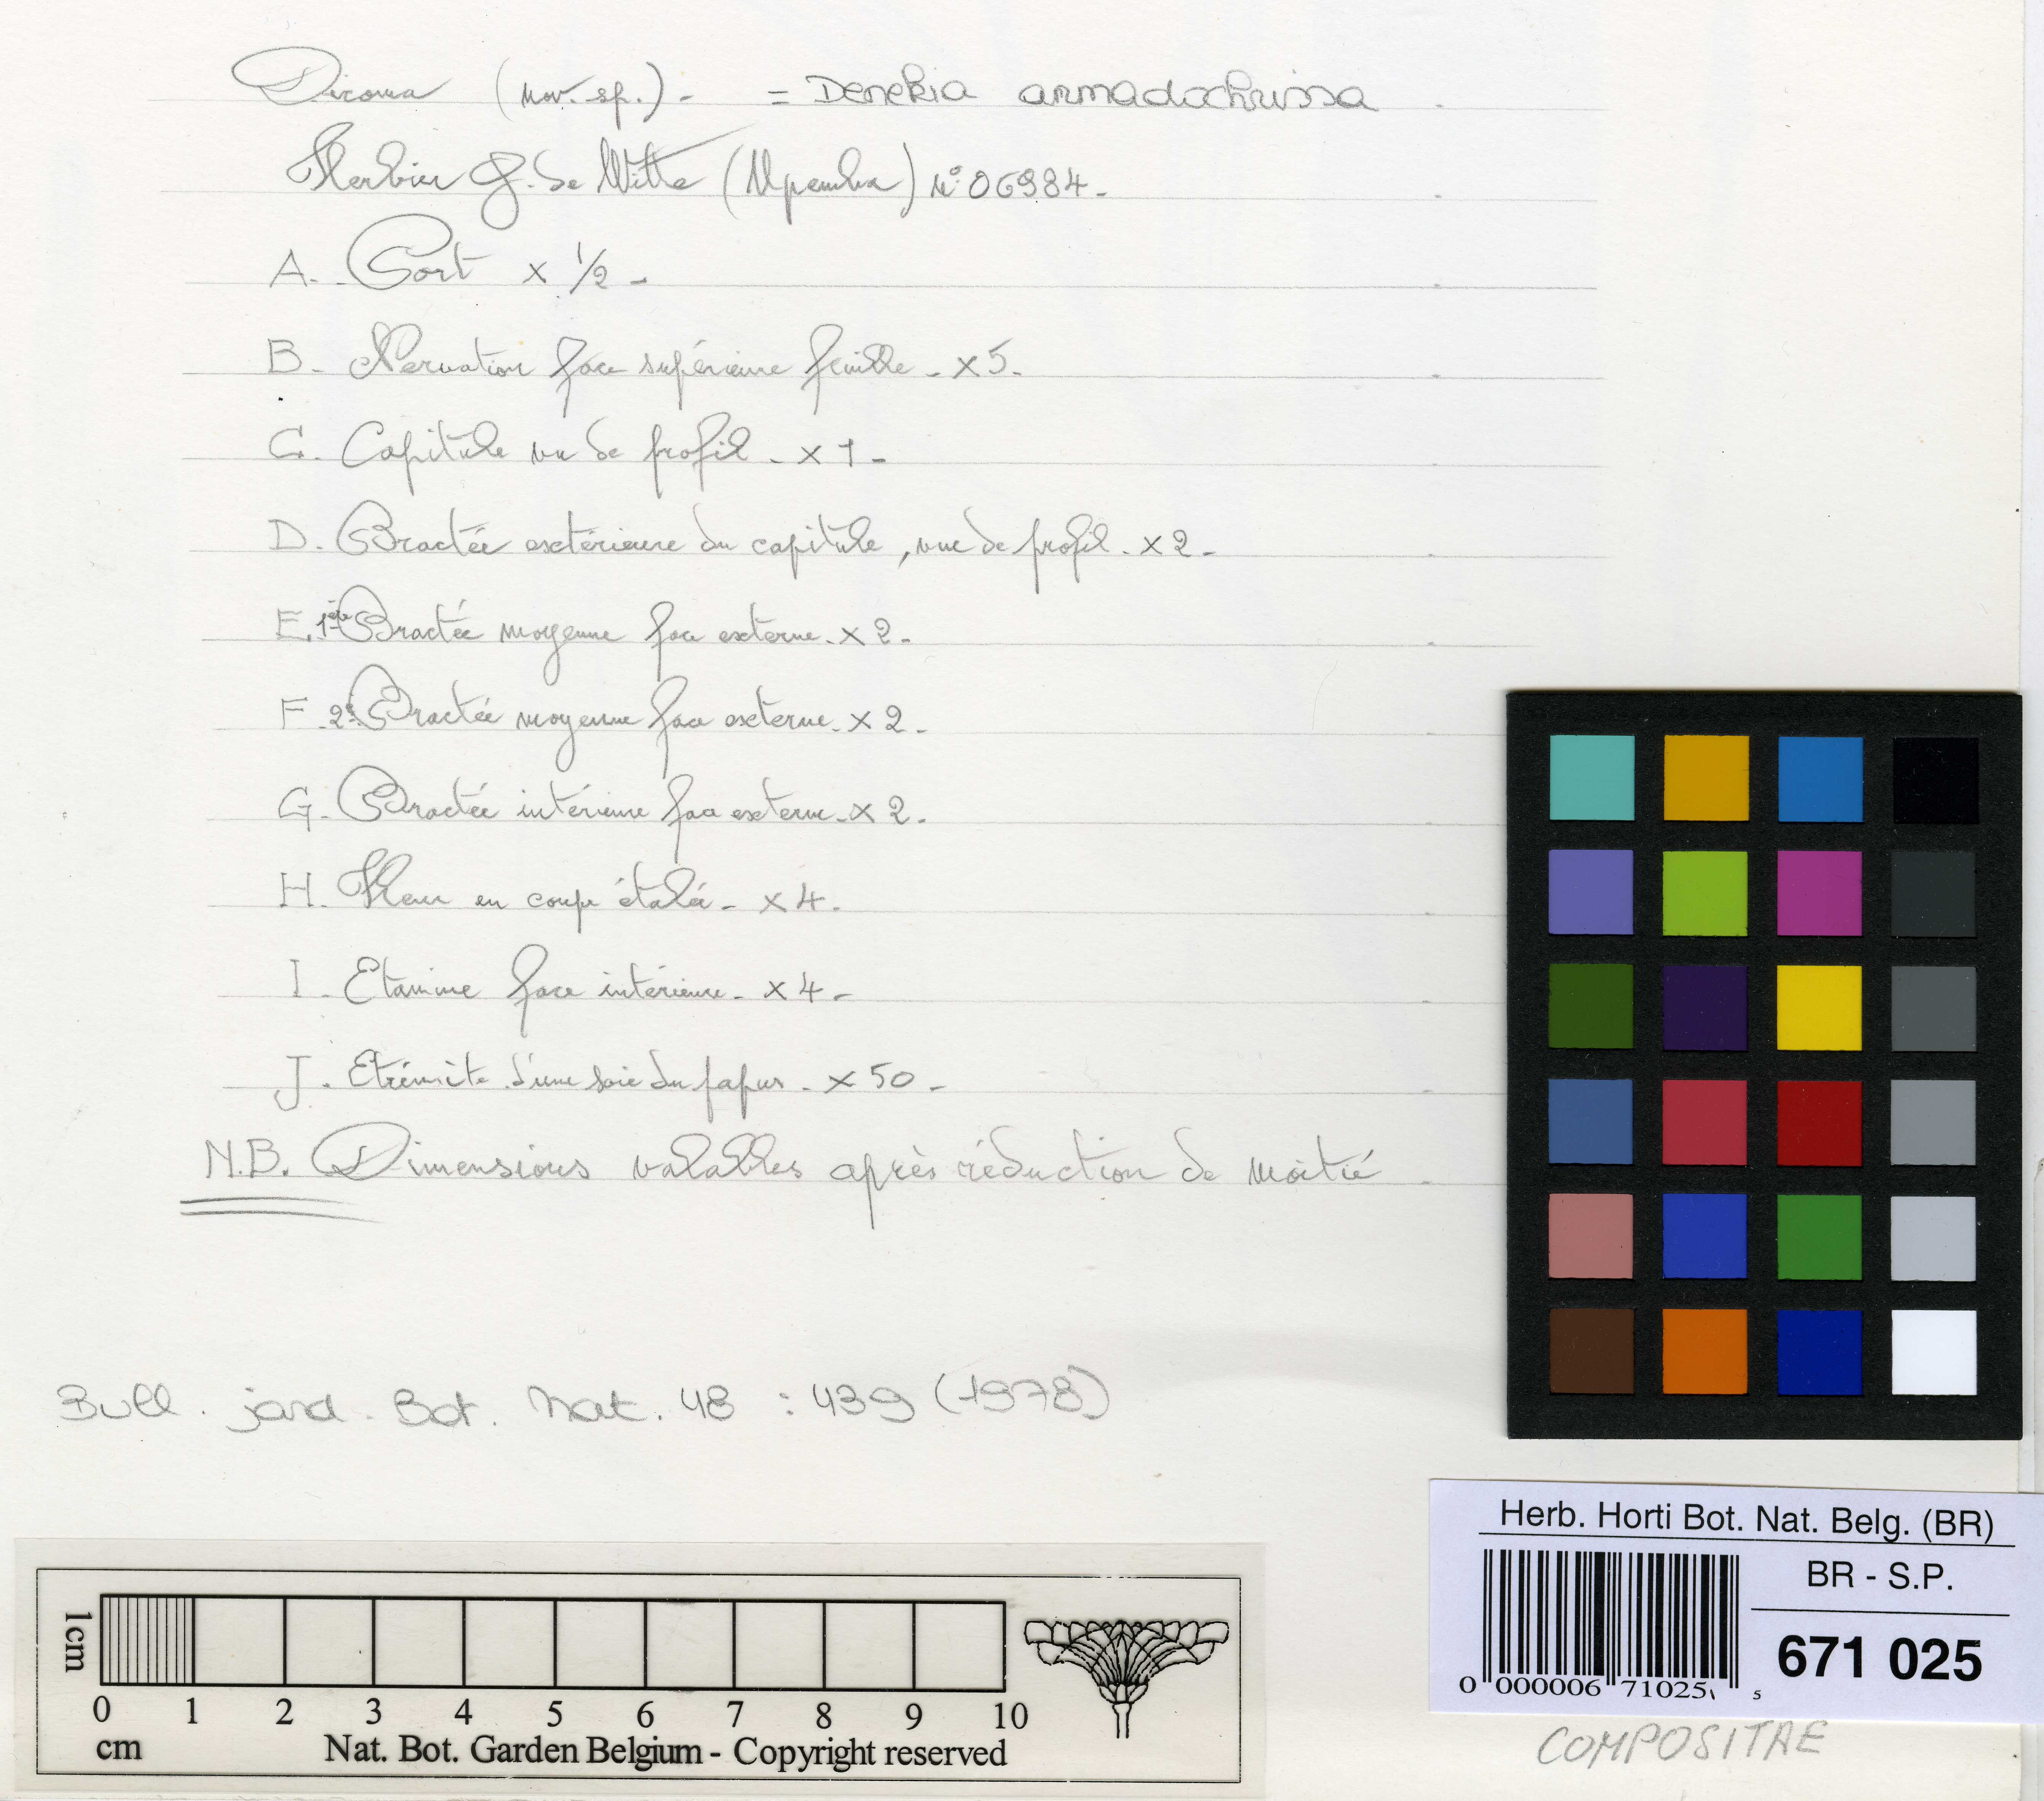 Dicoma (nov. sp.) - = Denekia armadochrissa
Herbier G. de Witte (Upemba) N° 06984 -
A. Port x 1/2 -
B. Nervation face supérieure feuille - x 5 -
C. Capitule vu de profil - x 1 -
D. Bractée extérieure du capitule, vue de profil - x 2 -
E. 1ère Bractée moyenne face externe - x 2 -
F. 2e Bractée moyenne face externe - x 2 -
G. Bractée intérieure face externe - x 2 -
H. Fleur en coupe étalée - x 4 -
I. Etamine face intérieure - x 4 -
J. Etrémité d'une soie du papus - x 50 -
N.B. Dimensions valables après réduction de moitié
Bull. jard. Bot. Nat. 48 : 439 (1978)
Herb. Horti Bot. Nat. Belg. (BR)
BR - S.P.
671 025
0 000006 71025 5
COMPOSITAE
1cm
0 1 2 3 4 5 6 7 8 9 10
cm
Nat. Bot. Garden Belgium - Copyright reserved